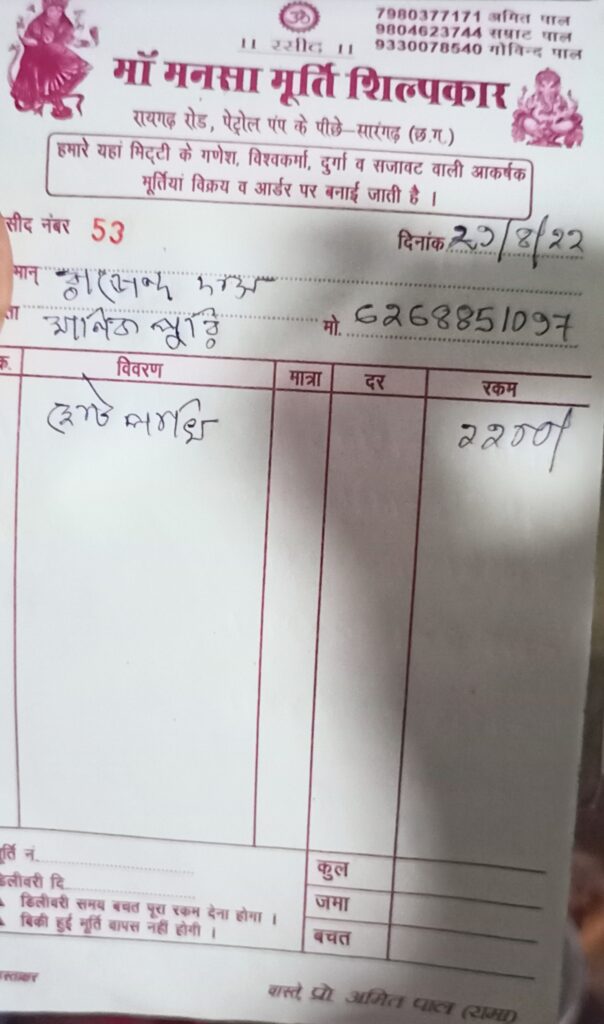 ॐ
7980377171 अमित पाल
9804623744 सम्राट पाल
9330078540 गोविन्द पाल
।। रसीद ।।
माँ मनसा मूर्ति शिल्पकार
रायगढ़ रोड, पेट्रोल पंप के पीछे-सारंगढ़ (छ.ग.)
हमारे यहां मिट्टी के गणेश, विश्वकर्मा, दुर्गा व सजावट वाली आकर्षक
मूर्तियां विक्रय व आर्डर पर बनाई जाती है ।
सीद नंबर 53 दिनांक /8/22
मान्
ता मो. 6268851097
क. विवरण मात्रा दर रकम
2200/
मूर्ति नं. कुल
डिलीवरी दि जमा
डिलीवरी समय बचत पूरा रकम देना होगा ।
बिकी हुई मूर्ति वापस नहीं होगी । बचत
वास्ते, प्रो. अमित पाल (रामा)